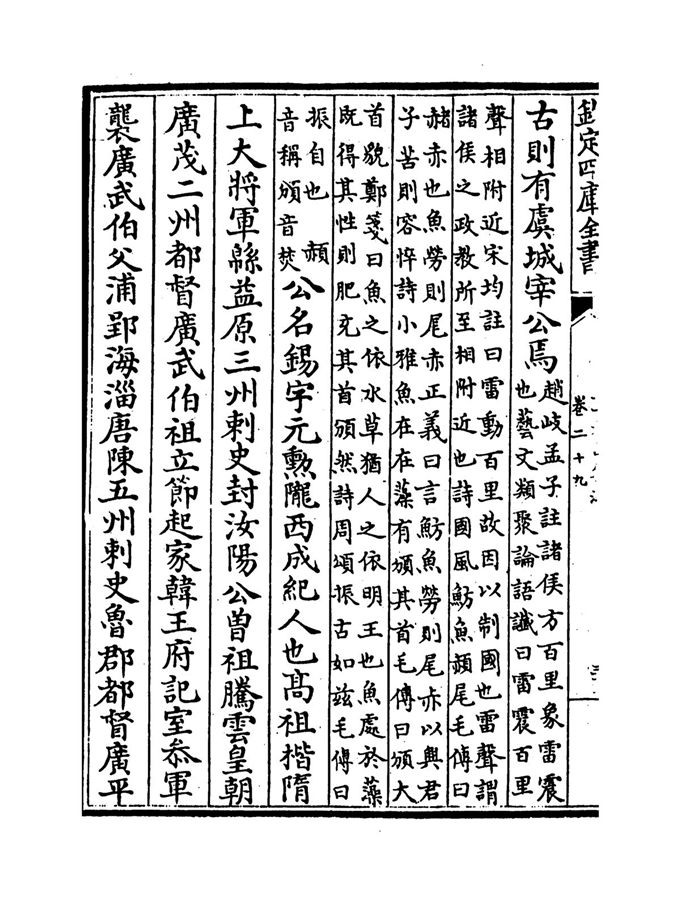 欽定四庫全書
卷二十九
古則有虞城宰公焉
趙岐孟子註諸侯方百里象雷震
也藝文類聚論語讖曰雷震百里
聲相附近宋均註曰雷動百里故因以制國也雷聲謂
諸侯之政教所至相附近也詩國風魴魚頳尾毛傳曰
赭赤也魚勞則尾赤正義曰言魴魚勞則尾赤以興君
子苦則容悴詩小雅魚在在藻有頒其首毛傳曰頒大
首貌鄭箋曰魚之依水草猶人之依明王也魚處於藻
既得其性則肥充其首頒然詩周頌振古如兹毛傳曰
振自也 頳
音稱頒音焚
公名錫字元勲隴西成紀人也髙祖楷隋
上大將軍緜益原三州刺史封汝陽公曾祖騰雲皇朝
廣茂二州都督廣武伯祖立節起家韓王府記室叅軍
襲廣武伯父浦郢海淄唐陳五州刺史魯郡都督廣平